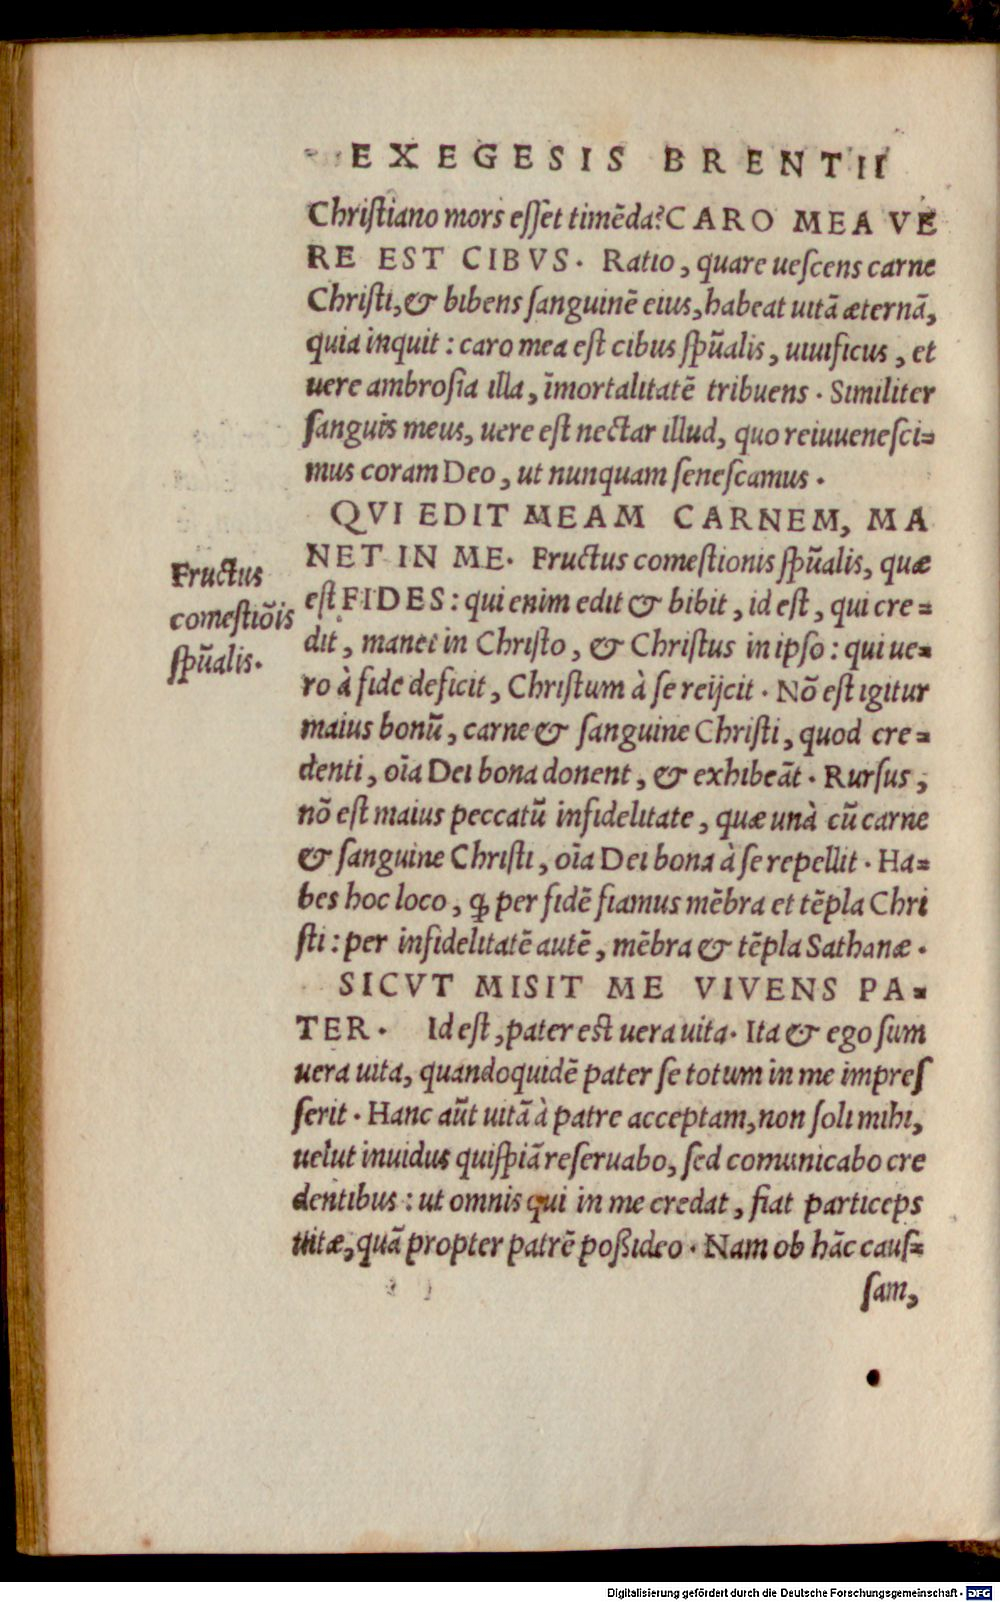 EXEGESIS BRENTII
Chriſtiano mors eſſet timēda? CARO MEA VE
RE EST CIBVS. Ratio, quare ueſcens carne
Chriſti, & bibens ſanguinē eius, habeat uitā æternā,
quia inquit: caro mea eſt cibus ſpūalis, uiuificus, et
uere ambroſia illa, īmortalitatē tribuens. Similiter
ſanguis meus, uere eſt nectar illud, quo reiuueneſci=
mus coram Deo, ut nunquam ſeneſcamus.
QVI EDIT MEAM CARNEM, MA
NET IN ME. Fructus comeſtionis ſpūalis, quæ
eſt FIDES: qui enim edit & bibit, id eſt, qui cre=
dit, manet in Chriſto, & Chriſtus in ipſo: qui ue=
ro à fide deficit, Chriſtum à ſe reijcit. Nō eſt igitur
maius bonū, carne & ſanguine Chriſti, quod cre=
denti, oīa Dei bona donent, & exhibeāt. Rurſus,
nō eſt maius peccatū infidelitate, quæ unà cū carne
& ſanguine Chriſti, oīa Dei bona à ſe repellit. Ha=
bes hoc loco, ꝙ per fidē fiamus mēbra et tēpla Chri
ſti: per infidelitatē autē, mēbra & tēpla Sathanæ.
SICVT MISIT ME VIVENS PA=
TER. Id eſt, pater eſt uera uita. Ita & ego ſum
uera uita, quandoquidē pater ſe totum in me impreſ
ſerit. Hanc aūt uitā à patre acceptam, non ſoli mihi,
uelut inuidus quiſpiā reſeruabo, ſed comunicabo cre
dentibus: ut omnis qui in me credat, fiat particeps
uitæ, quā propter patrē poßideo. Nam ob hāc cauſ=
ſam,
Fructus
comeſtiōis
ſpūalis.
Digitalisierung gefördert durch die Deutsche Forschungsgemeinschaft - DFG